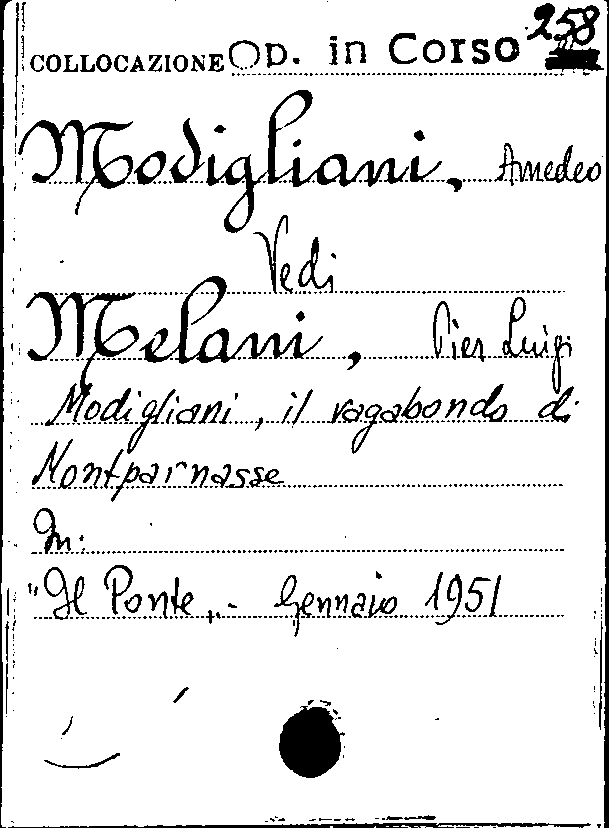 COLLOCAZIONE OP. in Corso 258
Modigliani, Amedeo
Vedi
Melani, Pier Luigi
Modigliani, il vagabondo di
Montparnasse
In:
"Il Ponte„- Gennaio 1951